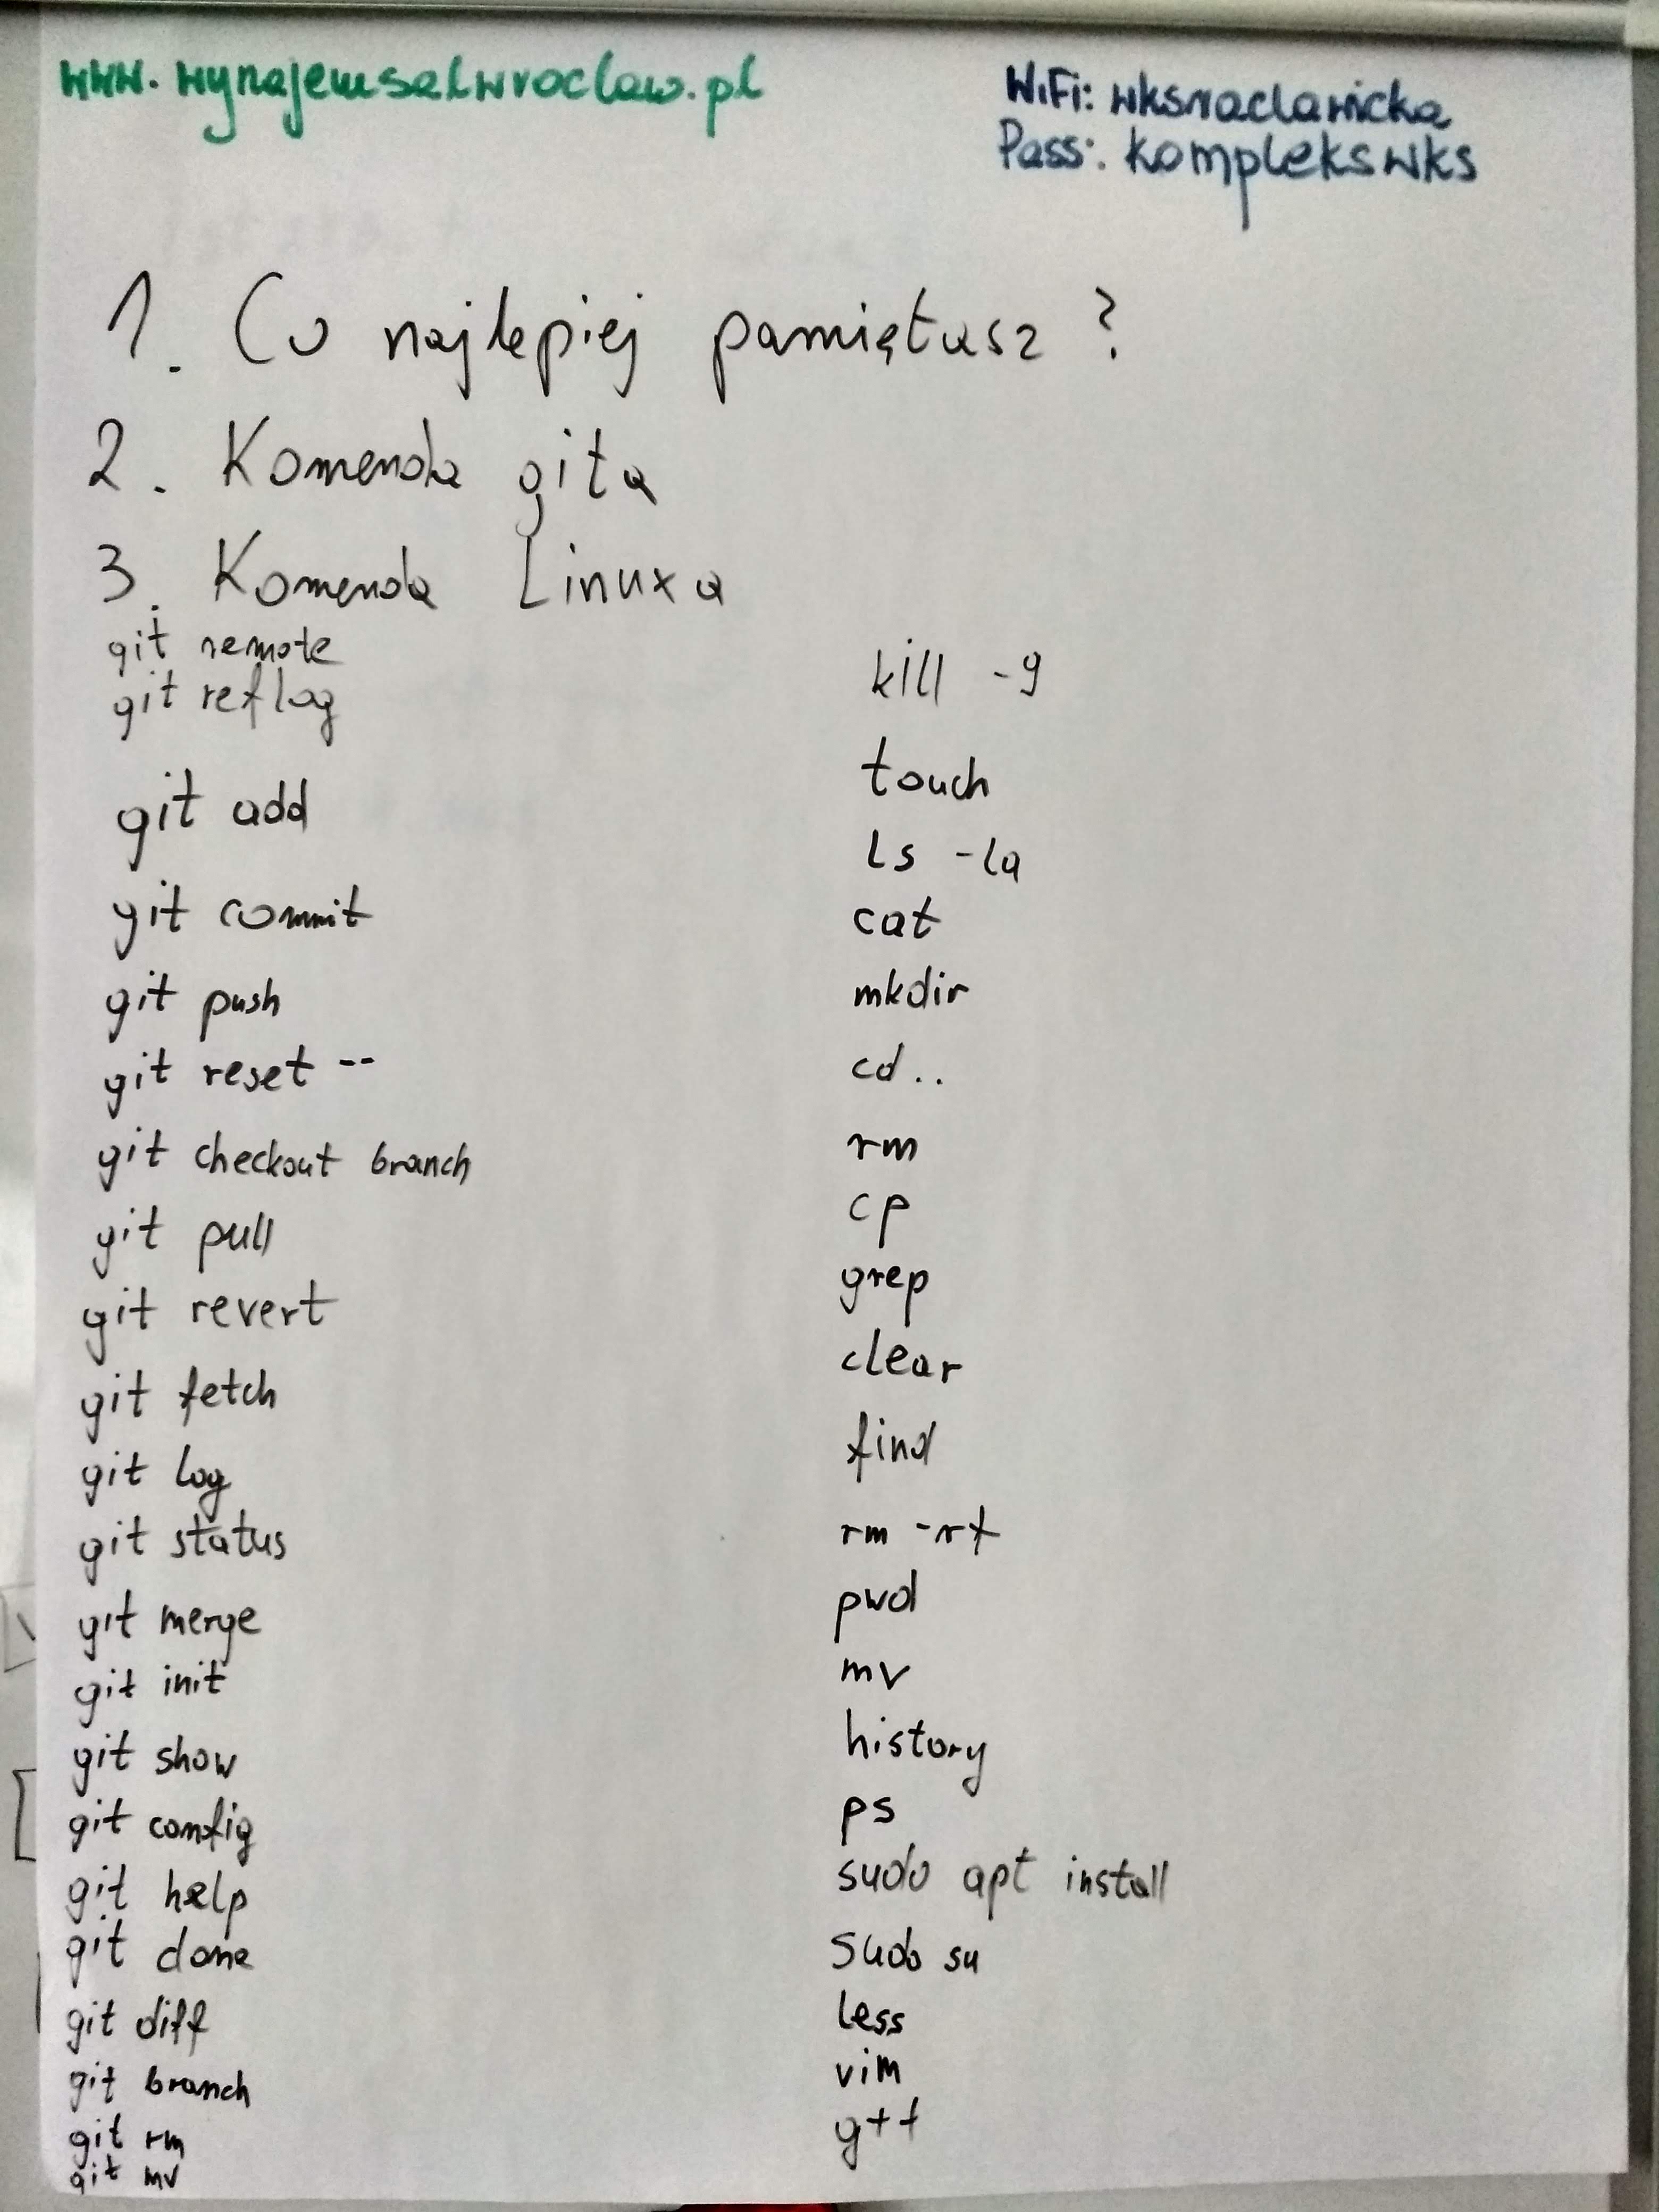 www.wynajemsalwroclaw.pl
WiFi: wksraclawicka
Pass: komplekswks
1. Co najlepiej pamiętasz ?
2. Komenda gita
3. Komenda Linuxa
git remote
git reflog
git add
git commit
git push
git reset --
git checkout branch
git pull
git revert
git fetch
git log
git status
git merge
git init
git show
git config
git help
git clone
git diff
git branch
git rm
git mv
kill -9
touch
ls -la
cat
mkdir
cd ..
rm
cp
grep
clear
find
rm -rf
pwd
mv
history
ps
sudo apt install
sudo su
less
vim
g++